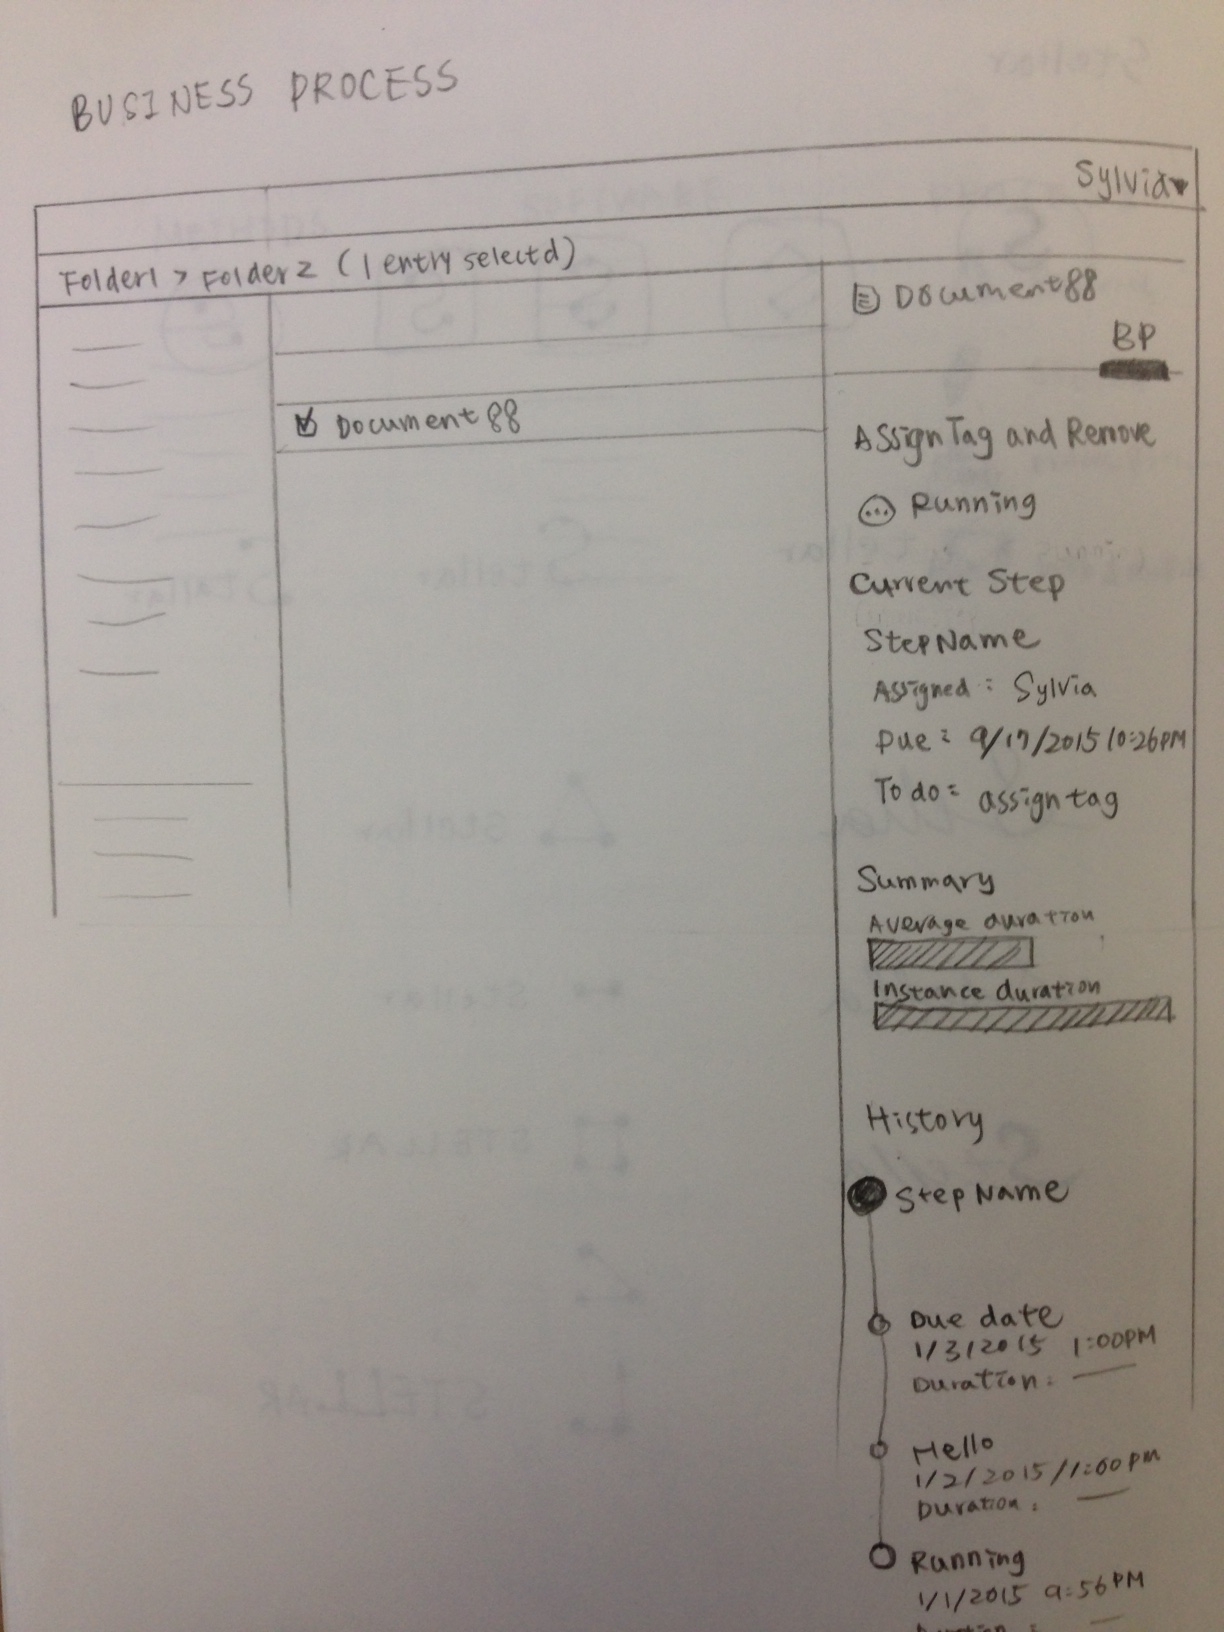 BUSINESS PROCESS
Sylvia
Folder1 > Folder2 (1 entry selectd)
Document88
BP
Document88
Assign Tag and Remove
Running
Current Step
StepName
Assigned: Sylvia
Due: 9/17/2015 10:26PM
To do: assign tag
Summary
Average duration
Instance duration
History
StepName
Due date
1/3/2015 1:00PM
Duration:
Hello
1/2/2015 /1:00pm
Duration:
Running
1/1/2015 9:56PM
Duration: